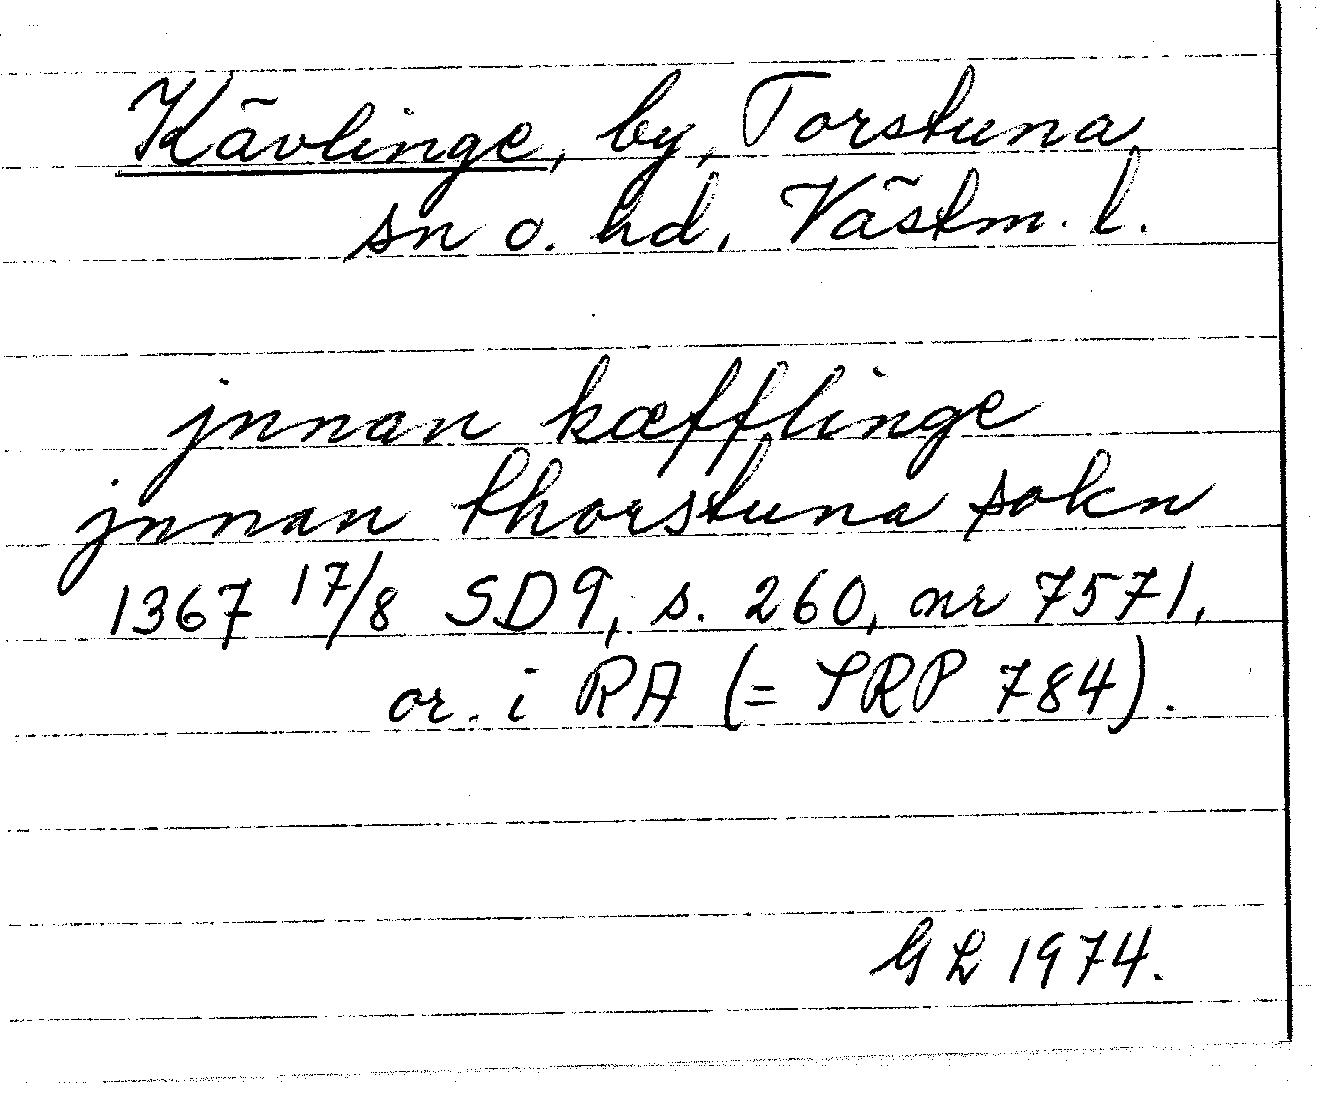 Kävlinge, by, Torstuna
sn o. hd, Västm. l.
jnnan kæfflinge
jnnan thorstuna sokn
1367 17/8 SD9, s. 260, nr 7571,
or. i RA (= SRP 784).
GL 1974.